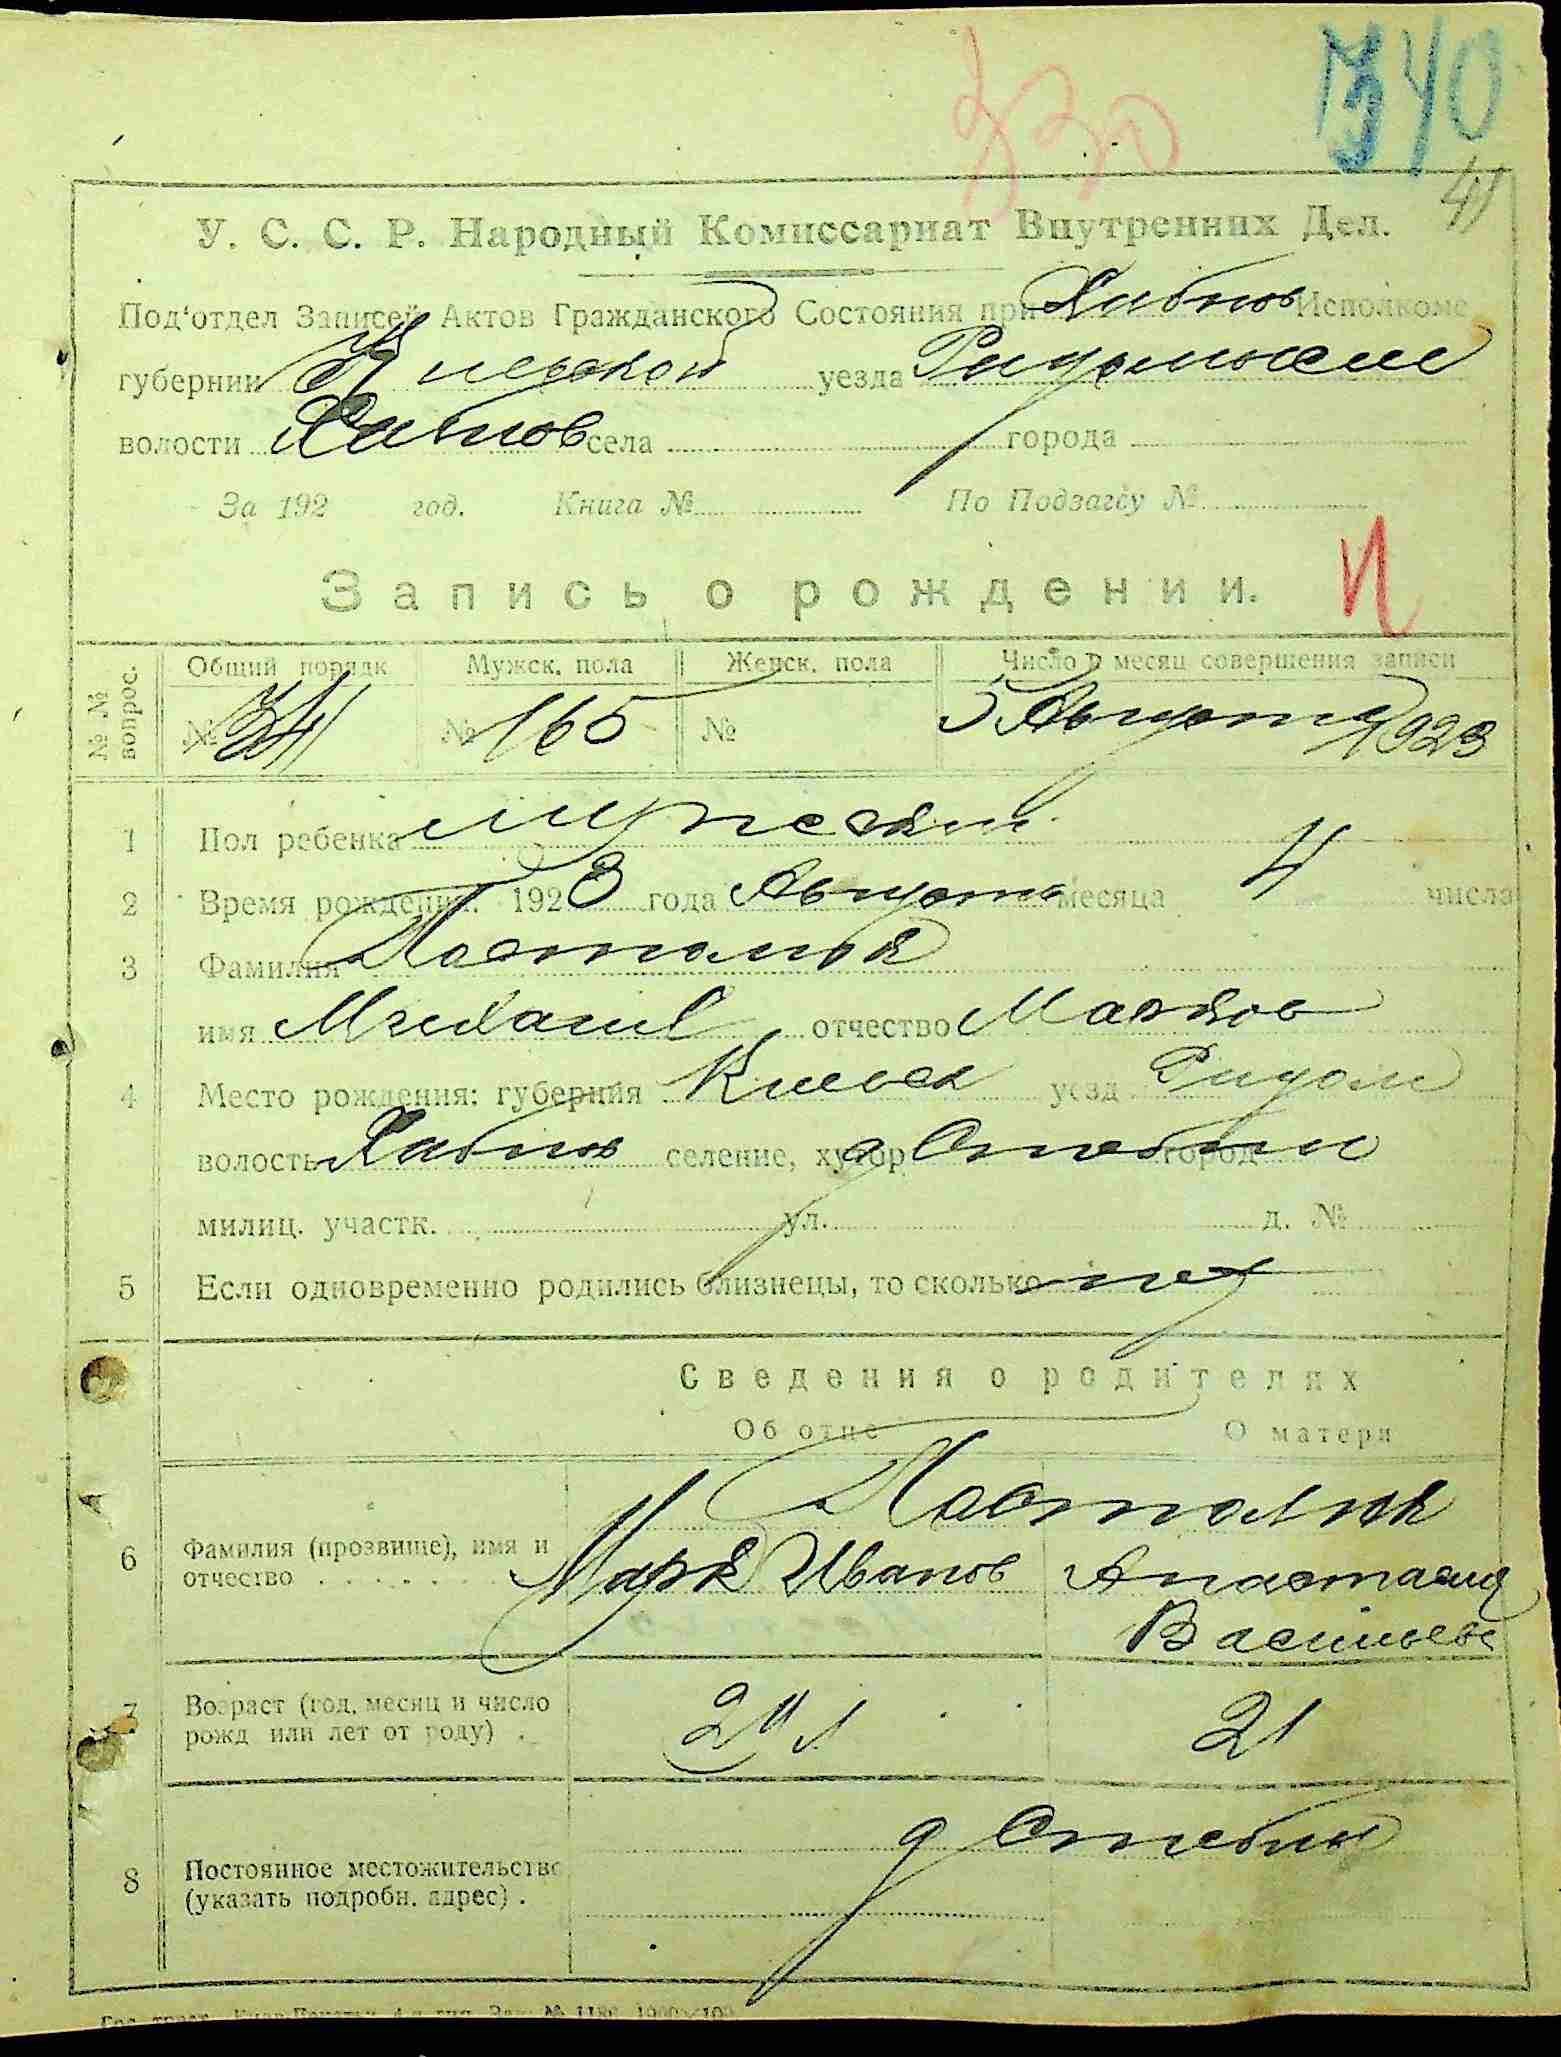 330
340
41
У. С. С. Р. Народный Комиссариат Внутренних Дел.
Под‘отдел Записей Актов Гражданского Состояния при Хабнов Исполкоме
губернии Киевской уезда
волости Хабнов села города
За 192 год. Книга № По Подзагсу №
Запись о рождении. И
№№ вопрос. Общий порядк Мужск. пола Женск. пола Число и месяц совершения записи
№ 341 № 165 № 5 Августа 1923
1 Пол ребенка мужской
2 Время рождения: 1923 года Августа месяца 4 числа
3 Фамилия
имя Михаил отчество Марков
4 Место рождения: губерния Киевск уезд Радом
волость Хабнов селение, хутор д Стебли город
милиц. участк. ул. д. №
5 Если одновременно родились близнецы, то сколько нет
Сведения о родителях
Об отце О матери
6 Фамилия (прозвище), имя и
отчество
Марк Иванов Анастасия
Васильев
7 Возраст (год, месяц и число
рожд или лет от роду) . 24 л 21
8 Постоянное местожительство
(указать подробн. адрес) . д Стебли